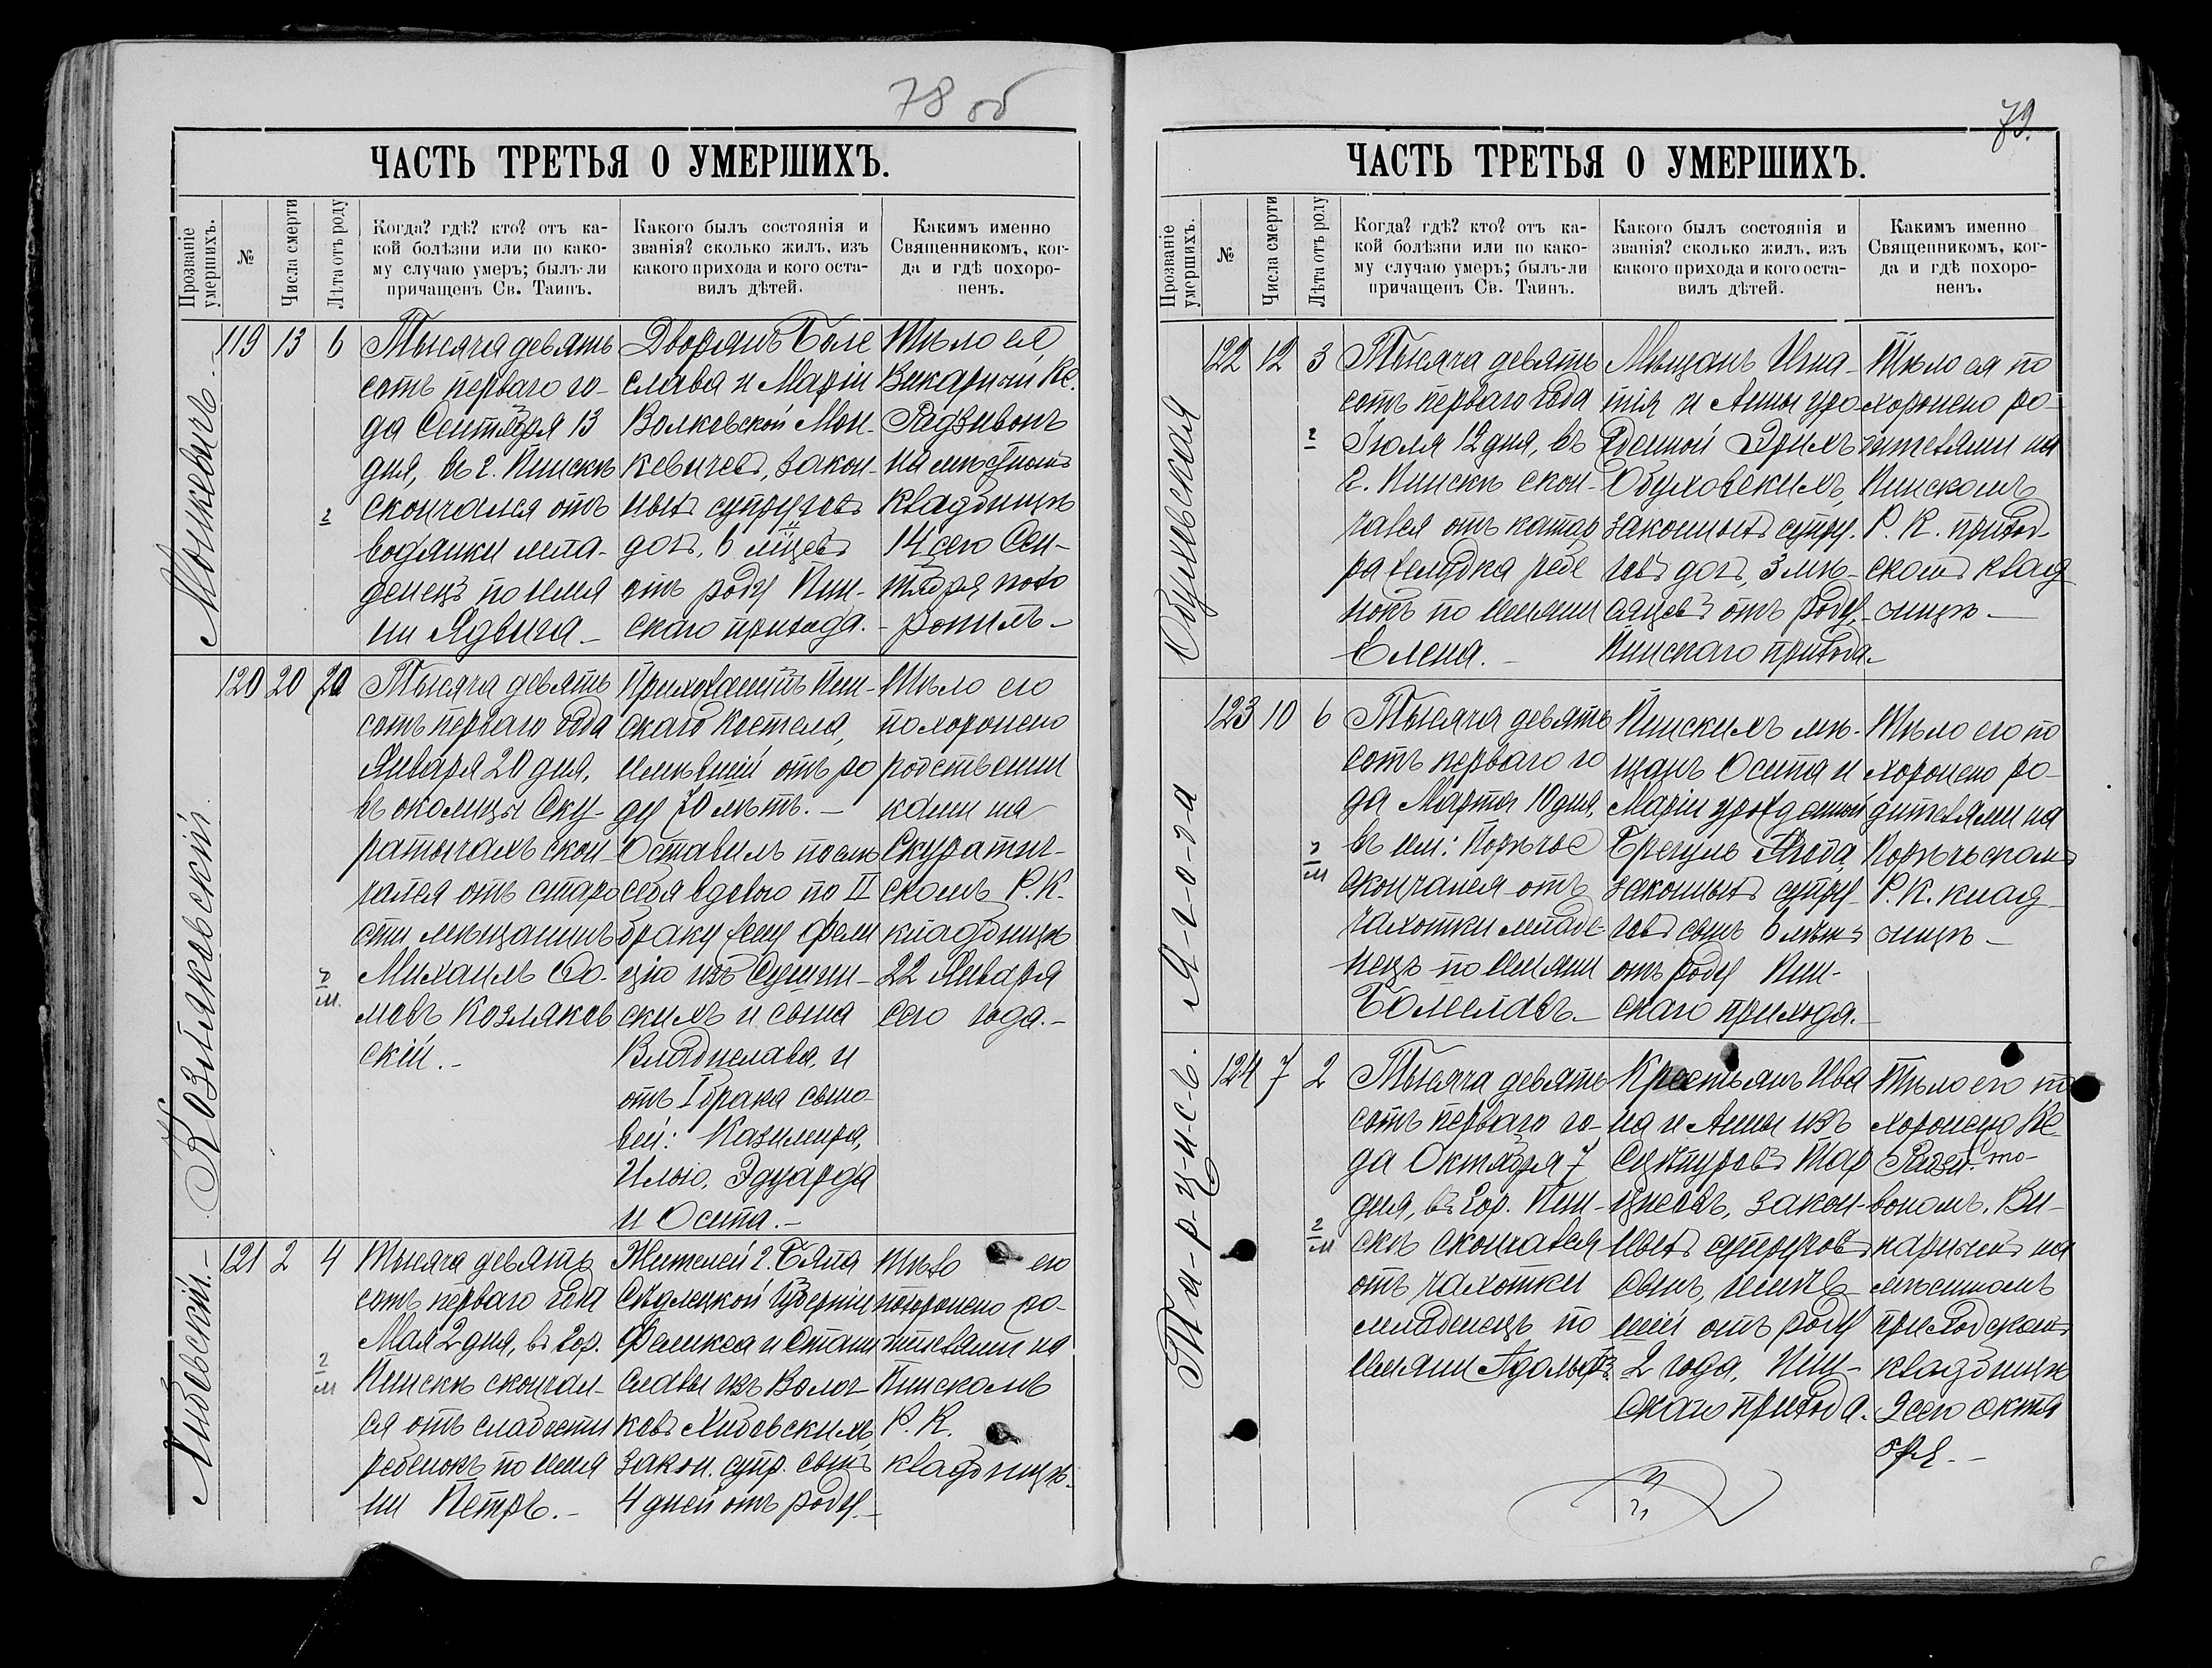 78 об
ЧАСТЬ ТРЕТЬЯ О УМЕРШИХЪ.
Прозваніе умершихъ.
№
Числа смерти
Лѣта отъ роду
Когда? гдѣ? кто? отъ ка-
кой болѣзни или по како-
му случаю умеръ; былъ-ли
причащенъ Св. Таинъ.
Какого былъ состоянія и
званія? сколько жилъ, изъ
какого прихода и кого оста-
вилъ дѣтей.
Каким​ъ именно
Священникомъ, ког-
да и гдѣ похоро-
ненъ.
Монкевичъ
119
13
6
Тысяча девять
сотъ перваго го-
да Сентября 13
дня, въ г. Пинскѣ
скончался отъ
водянки мла-
денецъ по имя
ни Ядвига –
Дворянъ Боле
слава и Маріи
Волковской Мон-
кевичевъ, закон-
ныхъ супруговъ
дочь, 6 м​ц​евъ
отъ роду Пин-
скаго прихода. –
Тѣло ея
Викарный Кс.
Радзивонъ
на мѣстномъ
кладбищѣ
14 сего Сен-
тября похо
ронилъ –
Козляковскій.
120
20
70
Тысяча девять
сотъ перваго года
Января 20 дня,
въ околицѣ Ску-
ратычахъ скон-
чался отъ старо
сти мѣщанинъ
Михаилъ Ѳо-
мовъ Козляков
скій. –
Прихожанинъ Пин-
скаго Костела,
имѣвшій отъ ро
ду 70 лѣтъ. –
Оставилъ послѣ
себя вдовою по II
браку жену Фели
цію изъ Сушин-
скихъ и сына
Владислава, и
отъ I брака сыно-
вей: Казимира,
Илью, Эдуарда
и Осипа. –
Тѣло его
похоронено
родственни
ками на
Скуратич-
скомъ Р. К.
кладбищѣ
22 Января
сего года. –
Либовскій. –
121
2
4
Тысяча девять
сотъ перваго года
Мая 2 дня, въ гор.
Пинскѣ скончал-
ся отъ слабости
ребенокъ по имя
ни Петръ. –
Жителей г. Бяла
Сѣдлецкой губерніи
Феликса и Стани
славы изъ Волоч-
ковъ Либовскихъ,
закон. супр. сынъ
4 дней отъ роду. –
Тѣло его
похоронено ро-
дителями на
Пинскомъ
Р. К.
кладбищѣ.
79.
ЧАСТЬ ТРЕТЬЯ О УМЕРШИХЪ.
Прозваніе умершихъ.
№
Числа смерти
Лѣта отъ роду
Когда? гдѣ? кто? отъ ка-
кой болѣзни или по како-
му случаю умеръ; былъ-ли
причащенъ Св. Таинъ.
Какого былъ состоянія и
званія? сколько жилъ, изъ
какого прихода и кого оста-
вилъ дѣтей.
Какимъ именно
Священникомъ, ког-
да и гдѣ похоро-
ненъ.
Обуховская
122
12
3
Тысяча девять
сотъ перваго года
Іюля 12 дня, въ
г. Пинскѣ скон-
чался отъ катар
ра желудка ребе
нокъ по имени
Елена. –
Мѣщанъ Игна-
тія и Анны уро-
жденной
Обуховскихъ,
законныхъ супру-
говъ дочь, 3 мѣ-
сяцевъ отъ роду,
Пинскаго прихода. –
Тѣло ея по
хоронено ро-
дителями на
Пинскомъ
Р. К. приход-
скомъ клад
бищѣ. –
Я-г-о-д-а
123
10
6
Тысяча девять
сотъ перваго го
да Марта 10 дня,
въ им: Порѣчье
скончался отъ
чахотки младе-
нецъ по имени
Болеславъ. –
Пинскихъ мѣ-
щанъ Осипа и
Маріи урожденной
Брегуль Ягода
законныхъ супру-
говъ сынъ 6 лѣтъ
отъ роду Пин-
скаго прихода. –
Тѣло его по
хоронено ро-
дителями на
Порѣчьскомъ
Р. К. клад
бищѣ –
Т-а-р-ц-и-с-ъ.
124
7
2
Тысяча девять
сотъ перваго го-
да Октября 7
дня, въ гор. Пин-
скѣ скончался
отъ чахотки
младенецъ по
имени Адольфъ.
Крестьянъ Ива
на и Анны изъ
Тар
цисовъ, закон-
ныхъ супруговъ
сынъ, имѣв-
шій отъ роду
2 года, Пин-
скаго прихода.
Тѣло его по
хоронено Кс.
Радзи-
вономъ, Ви-
карнымъ на
мѣстномъ
приходскомъ
кладбищѣ
9 сего Октя
бря. –